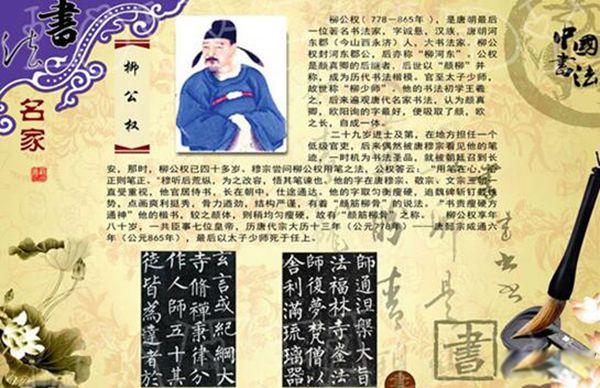 書
法
名家
柳公权
柳公权（778－865年），是唐朝最后
一位著名书法家，字诚悬，汉族，唐朝河
东郡（今山西永济）人，大书法家。柳公
权封河东郡公，后亦称“柳河东”。公权
是颜真卿的后继者，后世以“颜柳”并
称，成为历代书法楷模。官至太子少师，
故世称“柳少师”。他的书法初学王羲
之，后来遍观唐代名家书法，认为颜真
卿，欧阳询的字最好，便吸取了颜，欧
之长，自成一体。
二十九岁进士及第，在地方担任一个
低级官吏，后来偶然被唐穆宗看见他的笔
迹，一时机为书法圣品，就被朝廷召到长
安，那时，柳公权已四十多岁。穆宗尝问柳公权用笔之法，公权答云：“用笔在心，
正则笔正。”穆听后荒纵，为之改容，悟其笔谏也。他的字在唐穆宗、敬宗、文宗三朝一
直受重视，他官居侍书，长在朝中，仕途通达。他的字取匀衡瘦硬，追魏碑斩钉截铁
势，点画爽利挺秀，骨力遒劲，结构严谨，有着“颜筋柳骨”的说法。“书贵瘦硬方
通神”他的楷书，较之颜体，则稍均匀瘦硬，故有“颜筋柳骨”之称。 柳公权享年
八十岁，一共臣事七位皇帝，历唐代宗大历十三年（公元778年）——唐懿宗咸通六
年（公元865年），最后以太子少师死于任上。
中國
書法
師通涅槃大旨
法福林寺崟法
師復夢梵僧以
舍利滿琉璃器
玄言或紀綱大
寺脩禪秉律分
作人師五十其
徒皆為達者於
書